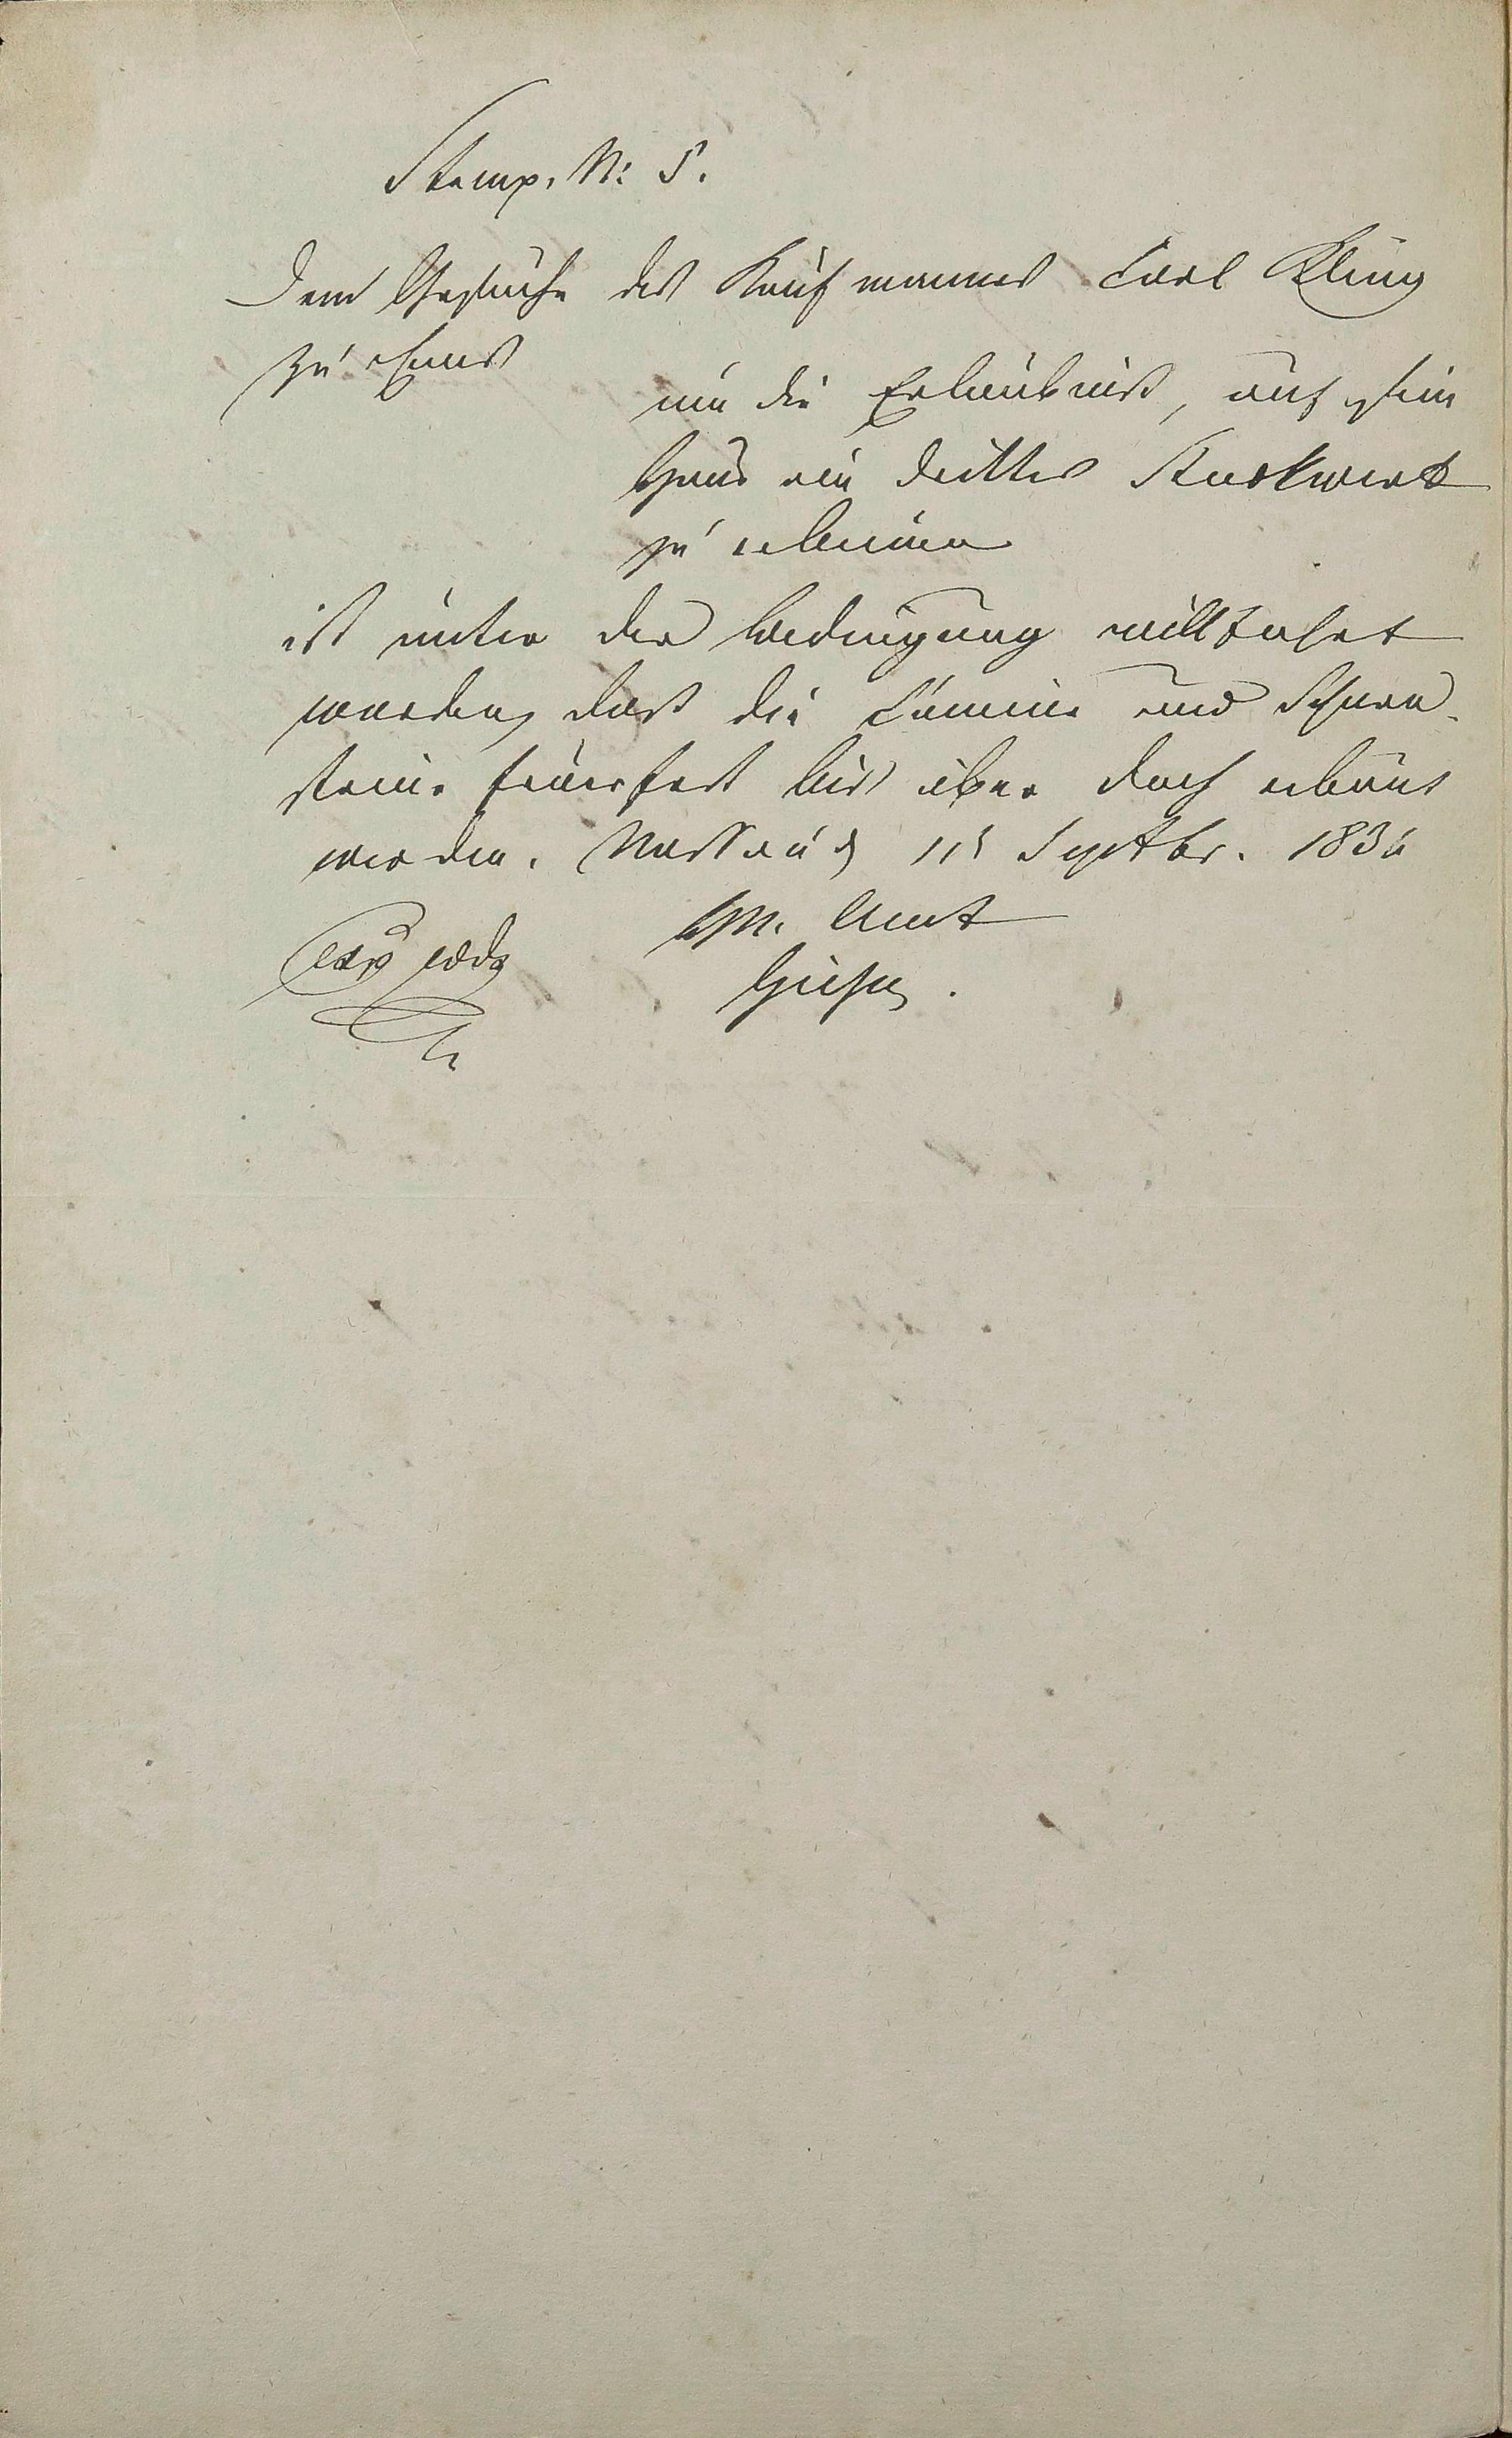 Stemp. N: 5.
Dem Gesuche des Kaufmannes Carl Kling
zu Ems
um die Erlaubniß, auf sein
Haus ein drittes Stockwerk
zu erbauen
ist unter der Bedingung willfahrt
worden, daß die Camine und Schorn-
steine feuerfest bis über Dach erbaut
werden. Nassau d 11t Septbr. 183
H. N. Amt